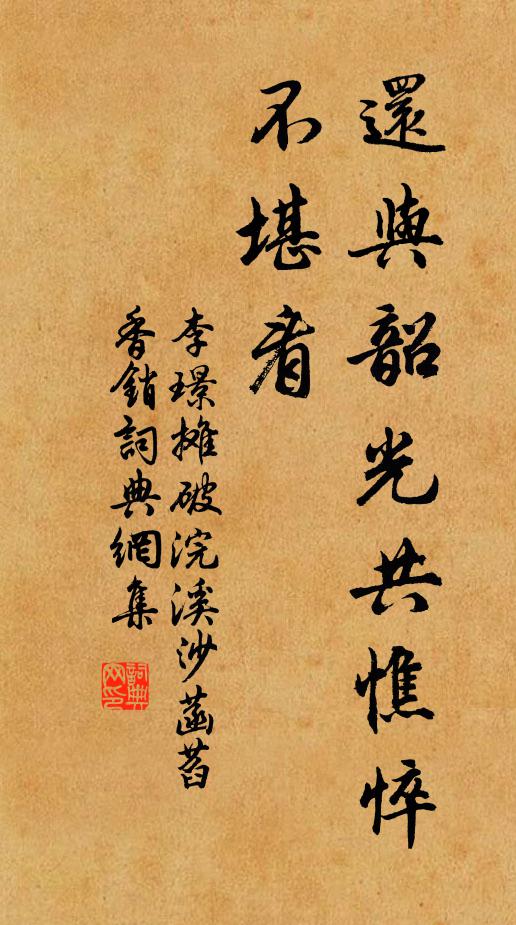 還與韶光共憔悴
不堪看
李璟攤破浣溪沙菡萏
香銷詞典網集
詞典
网印